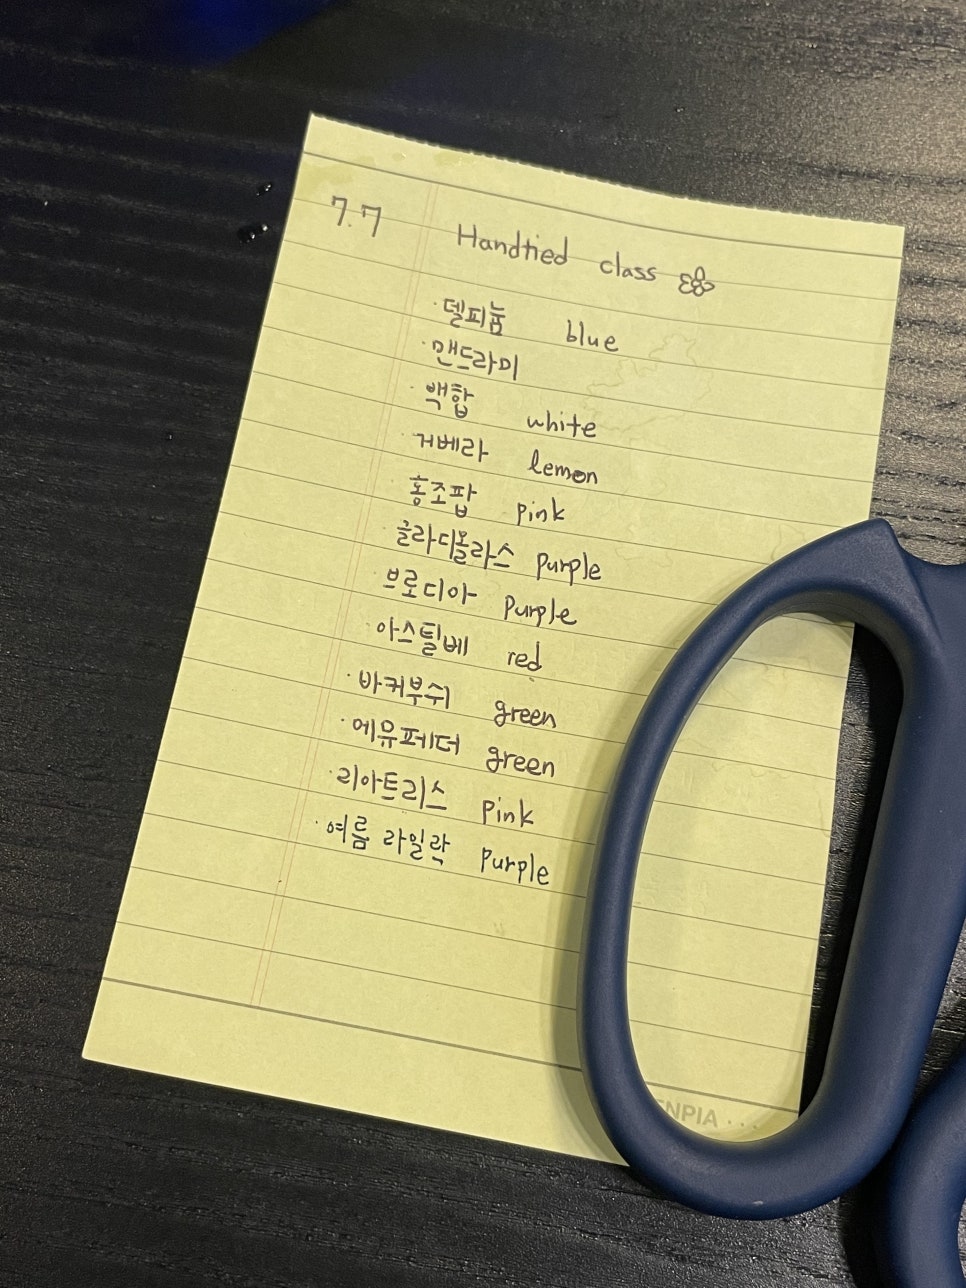 7.7 Handtied class
· 델피늄 blue
· 맨드라미
· 백합 white
· 거베라 lemon
· 홍조팝 pink
· 글라디올라스 purple
· 브로디아 purple
· 아스틸베 red
· 바커부쉬 green
· 에뮤페더 green
· 리아트리스 pink
· 여름 라일락 purple
ENPIA